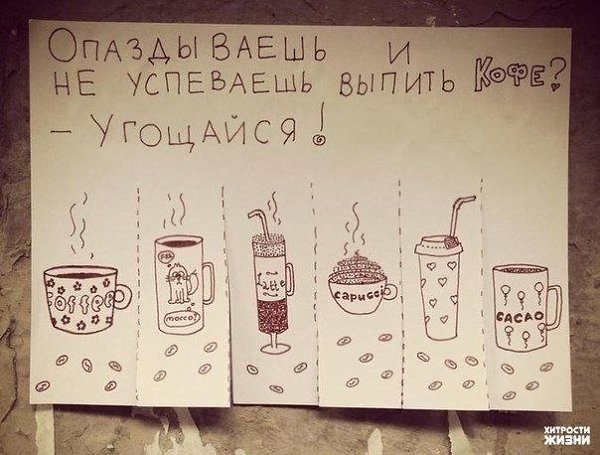 Опаздываешь и
не успеваешь выпить Кофе?
– Угощайся!
coffee
Latte
capucci
CACAO
ХИТРОСТИ
ЖИЗНИ